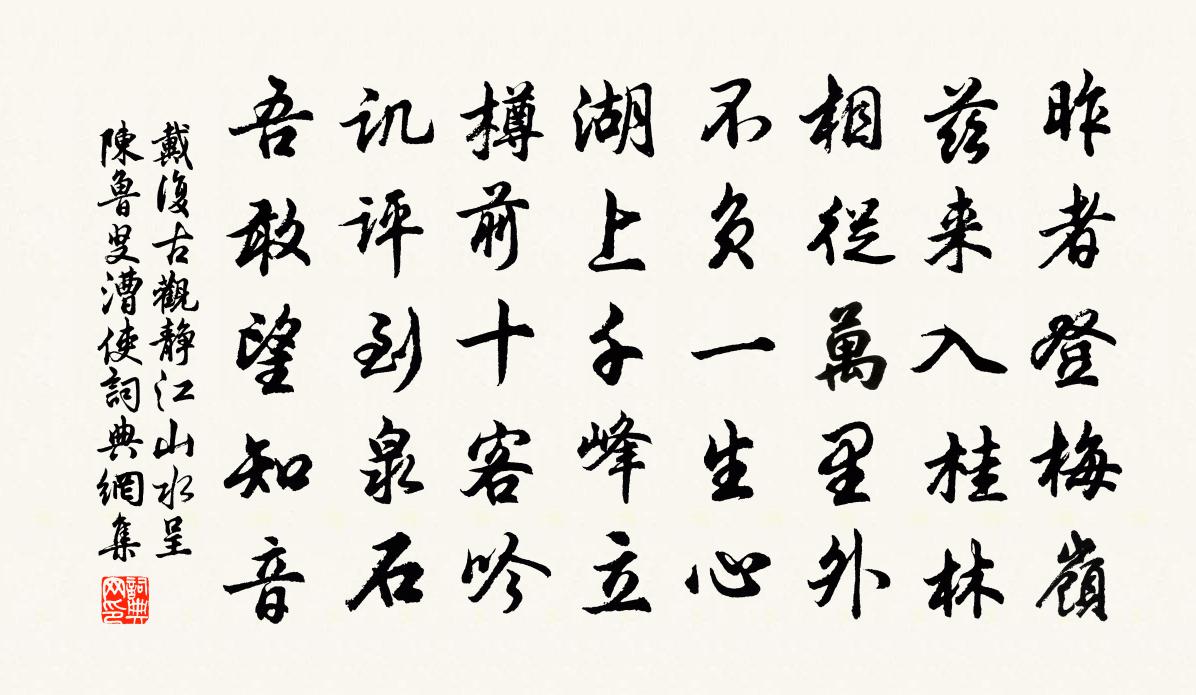 昨者登梅嶺
茲来入桂林
相從萬里外
不負一生心
湖上千峰立
樽前十客吟
讥評到泉石
吾敢望知音
戴復古觀靜江山水呈
陳魯叟漕使詞典網集
詞典网印